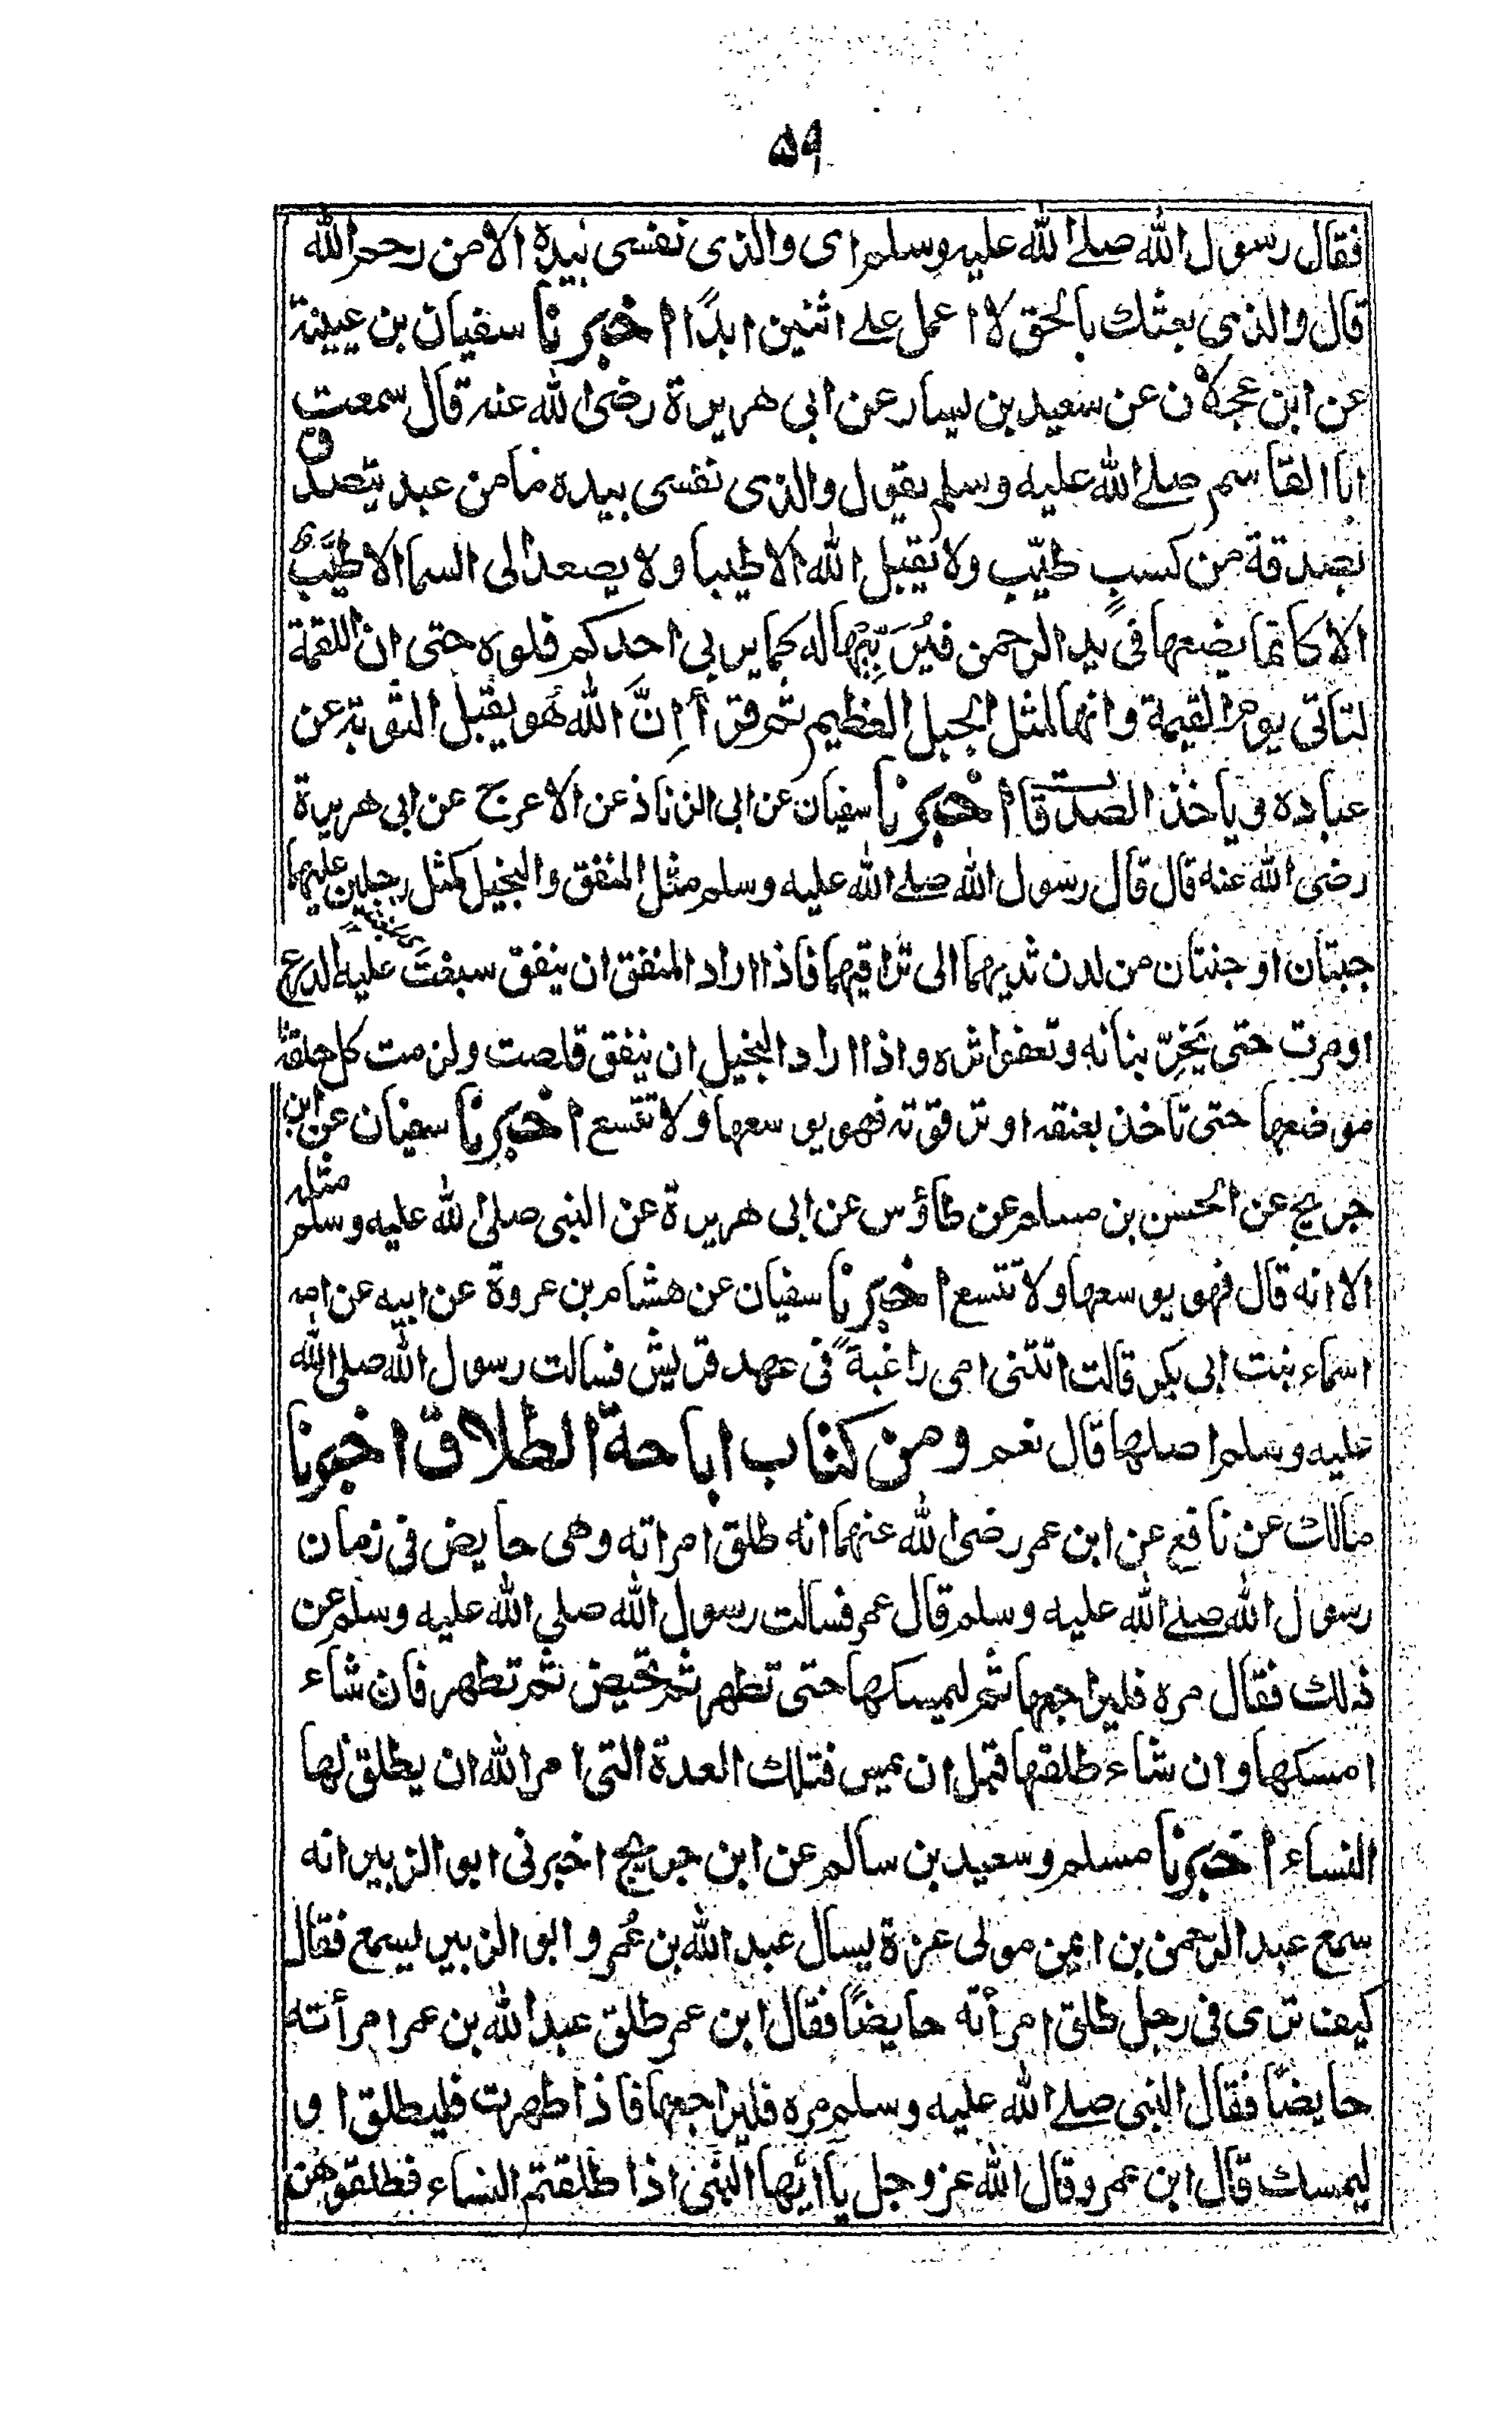 ۵۹
فقال رسول الله صلے الله عليه وسلم اى والذى نفسى بيده الا من رحم الله
قال والذى بعثك بالحق لا اعمل علے اثنين ابدًا اخبرنا سفيان بن عيينة
عن ابن عجلان عن سعيد بن يسار عن ابى هريرة رضى الله عنه قال سمعت
ابا القاسم صلے الله عليه وسلم يقول والذى نفسى بيده ما من عبد يتصدق
بصدقة من كسبٍ طيّب ولا يقبل الله الا طيبا ولا يصعد الى السما الا طيّبٌ
الا كانما يضعها فى يد الرحمن فيُرَبِّيْها له كما يربى احدكم فلوه حتى ان اللقمة
لتاتى يوم القيمة وانها لمثل الجبل العظيم ثم قرأ اِنَّ الله هُو يقبل التوبة عن
عباده وياخذ الصدقات اخبرنا سفيان عن ابى الزناد عن الاعرج عن ابى هريرة
رضى الله عنه قال قال رسول الله صلے الله عليه وسلم مثل المنفق والبخيل كمثل رجلين عليهما
جبتان او جنتان من لدن ثديهما الى تراقيهما فاذا اراد المنفق ان ينفق سبغت عليه الدرع
او مرت حتى يَخِرّ بنانه وتعفو اثره واذا اراد البخيل ان ينفق قلصت ولزمت كل حلقة
موضعها حتى تاخذ بعنقه او ترقوته فهو يوسعها ولا تتسع اخبرنا سفيان عن ابن
جريج عن الحسن بن مسلم عن طاؤس عن ابى هريرة عن النبى صلى الله عليه وسلم مثله
الا انه قال فهو يوسعها ولا تتسع اخبرنا سفيان عن هشام بن عروة عن ابيه عن امه
اسماء بنت ابى بكر قالت اتتنى امى راغبةً فى عهد قريش فسالت رسول الله صلى الله
عليه وسلم اصلها قال نعم ومن كتاب اباحة الطلاق اخبرنا
مالك عن نافع عن ابن عمر رضى الله عنهما انه طلق امراته وهى حايض فى زمان
رسول الله صلے الله عليه وسلم قال عمر فسالت رسول الله صلى الله عليه وسلم عن
ذلك فقال مره فليراجعها ثم ليمسكها حتى تطهر ثم تحيض ثم تطهر فان شاء
امسكها وان شاء طلقها قبل ان يمس فتلك العدة التى امر الله ان يطلق لها
النساء اخبرنا مسلم وسعيد بن سالم عن ابن جريج اخبرنى ابو الزبير انه
سمع عبد الرحمن بن ايمن مولى عزة يسال عبد الله بن عُمر وابو الزبير يسمع فقال
كيف ترى فى رجل طلق امرأته حايضًا فقال ابن عمر طلق عبد الله بن عمر امرأته
حايضًا فقال النبى صلے الله عليه وسلم مره فليراجعها فاذا طهرت فليطلق او
ليمسك قال ابن عمر وقال الله عز وجل يا ايّها النبى اذا طلقتم النساء فطلقوهن